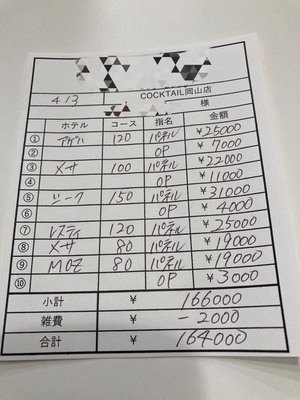 COCKTAIL岡山店
4/3 様
ホテル コース 指名 金額
① アゲハ 120 パネル ¥25000
② OP ¥7000
③ メサ 100 パネル ¥22000
④ OP ¥11000
⑤ シーク 150 パネル ¥31000
⑥ OP ¥4000
⑦ 120 パネル ¥25000
⑧ メサ 80 パネル ¥19000
⑨ MOZ 80 パネル ¥19000
⑩ OP ¥3000
小計 ¥ 166000
雑費 ¥ -2000
合計 ¥ 164000